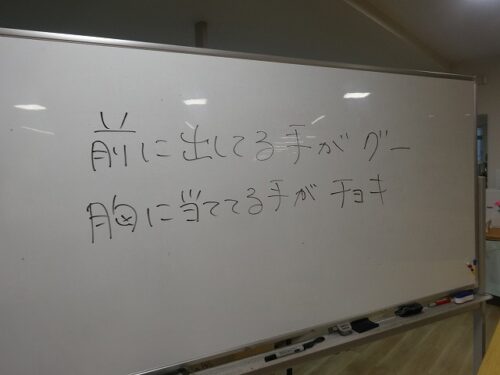 前に出してる手がグー
胸に当ててる手がチョキ